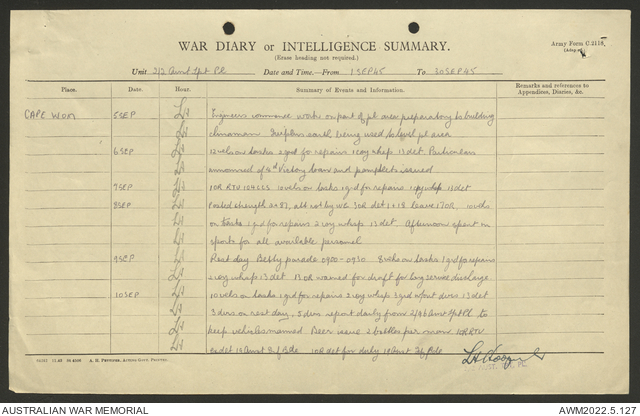 WAR DIARY or INTELLIGENCE SUMMARY.
(Erase heading not required.)
Army Form C.2118.
Unit 2/2 Amb Tpt Pl Date and Time.—From 1 SEP 45 To 30 SEP 45
Place. Date. Hour. Summary of Events and Information. Remarks and references to Appendices, Diaries, &c.
CAPE WOM 5 SEP Engineers commence work on part of pl area preparatory to building
cinemaman Surplus earth being used to level pl area
6 SEP 12 vehs on tasks 2 grd for repairs 1 coy whsp 13 det.
announced of 4th Victory loan and pamphlets issued
7 SEP 1 OR RTU 104 CCS 10 vehs on tasks 1 grd for repairs 1 coy whsp 13 det
8 SEP Posted strength 2 + 83, all not by WE 3 OR det 1 + 18 leave 17 OR. 10 vehs
on tasks 1 grd for repairs 2 coy whsp 13 det. Afternoon spent on
sports for all available personel
9 SEP Rest day Betty parade 0900 - 0930 8 vehs on tasks 1 grd for repairs
2 coy whsp 13 det 13 OR warned for draft for long service discharge
10 SEP 10 vehs on tasks 1 grd for repairs 2 coy whsp 3 grd w/out dvrs 13 det
3 dvrs on rest day, 5 dvrs report daily from 2/96 Amb Tpt Pl to
keep vehicles manned Beer issue 2 bottles per man 1 OR RTU
A. H. PETTIFER, ACTING GOVT. PRINTER.
AUSTRALIAN WAR MEMORIAL
AWM2022.5.127